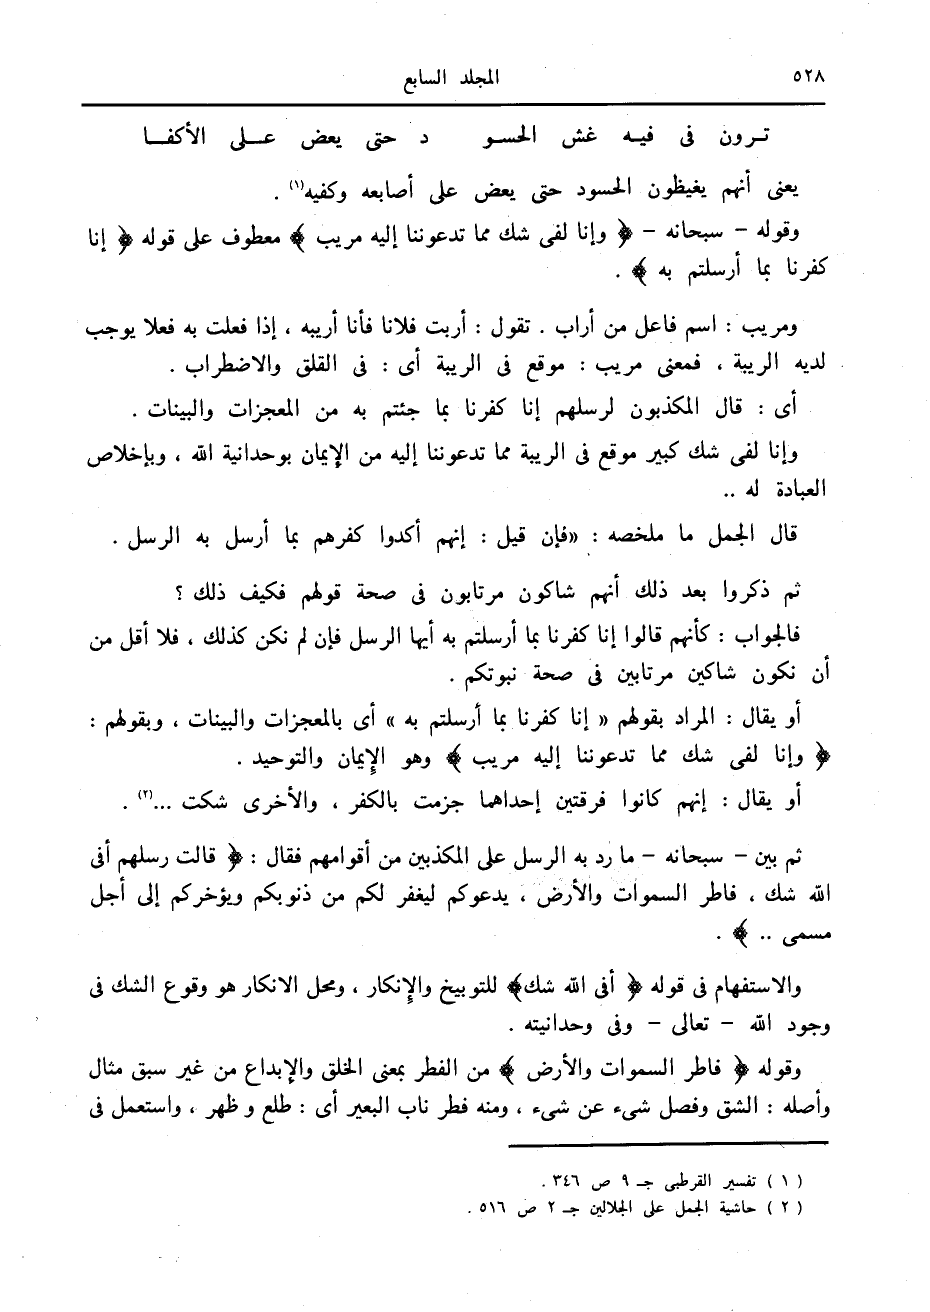 ٥٢٨ المجلد السابع
ترون فى فيه غش الحسو د حتى يعض على الأكفا
يعنى أنهم يغيظون الحسود حتى يعض على أصابعه وكفيه(١) .
وقوله – سبحانه – ﴿ وإنا لفى شك مما تدعوننا إليه مريب ﴾ معطوف على قوله ﴿ إنا
كفرنا بما أرسلتم به ﴾ .
ومريب : اسم فاعل من أراب . تقول : أربت فلانا فأنا أريبه ، إذا فعلت به فعلا يوجب
لديه الريبة ، فمعنى مريب : موقع فى الريبة أى : فى القلق والاضطراب .
أى : قال المكذبون لرسلهم إنا كفرنا بما جئتم به من المعجزات والبينات .
وإنا لفى شك كبير موقع فى الريبة مما تدعوننا إليه من الإيمان بوحدانية الله ، وبإخلاص
العبادة له ..
قال الجمل ما ملخصه : «فإن قيل : إنهم أكدوا كفرهم بما أرسل به الرسل .
ثم ذكروا بعد ذلك أنهم شاكون مرتابون فى صحة قولهم فكيف ذلك ؟
فالجواب : كأنهم قالوا إنا كفرنا بما أرسلتم به أيها الرسل فإن لم نكن كذلك ، فلا أقل من
أن نكون شاكين مرتابين فى صحة نبوتكم .
أو يقال : المراد بقولهم « إنا كفرنا بما أرسلتم به » أى بالمعجزات والبينات ، وبقولهم :
﴿ وإنا لفى شك مما تدعوننا إليه مريب ﴾ وهو الإيمان والتوحيد .
أو يقال : إنهم كانوا فرقتين إحداهما جزمت بالكفر ، والأخرى شكت ...(٢) .
ثم بين – سبحانه – ما رد به الرسل على المكذبين من أقوامهم فقال : ﴿ قالت رسلهم أفى
الله شك ، فاطر السموات والأرض ، يدعوكم ليغفر لكم من ذنوبكم ويؤخركم إلى أجل
مسمى .. ﴾ .
والاستفهام فى قوله ﴿ أفى الله شك﴾ للتوبيخ والإنكار ، ومحل الانكار هو وقوع الشك فى
وجود الله – تعالى – وفى وحدانيته .
وقوله ﴿ فاطر السموات والأرض ﴾ من الفطر بمعنى الخلق والإبداع من غير سبق مثال
وأصله : الشق وفصل شىء عن شىء ، ومنه فطر ناب البعير أى : طلع و ظهر ، واستعمل فى
( ١ ) تفسير القرطبى جـ ٩ ص ٣٤٦ .
( ٢ ) حاشية الجمل على الجلالين جـ ٢ ص ٥١٦ .